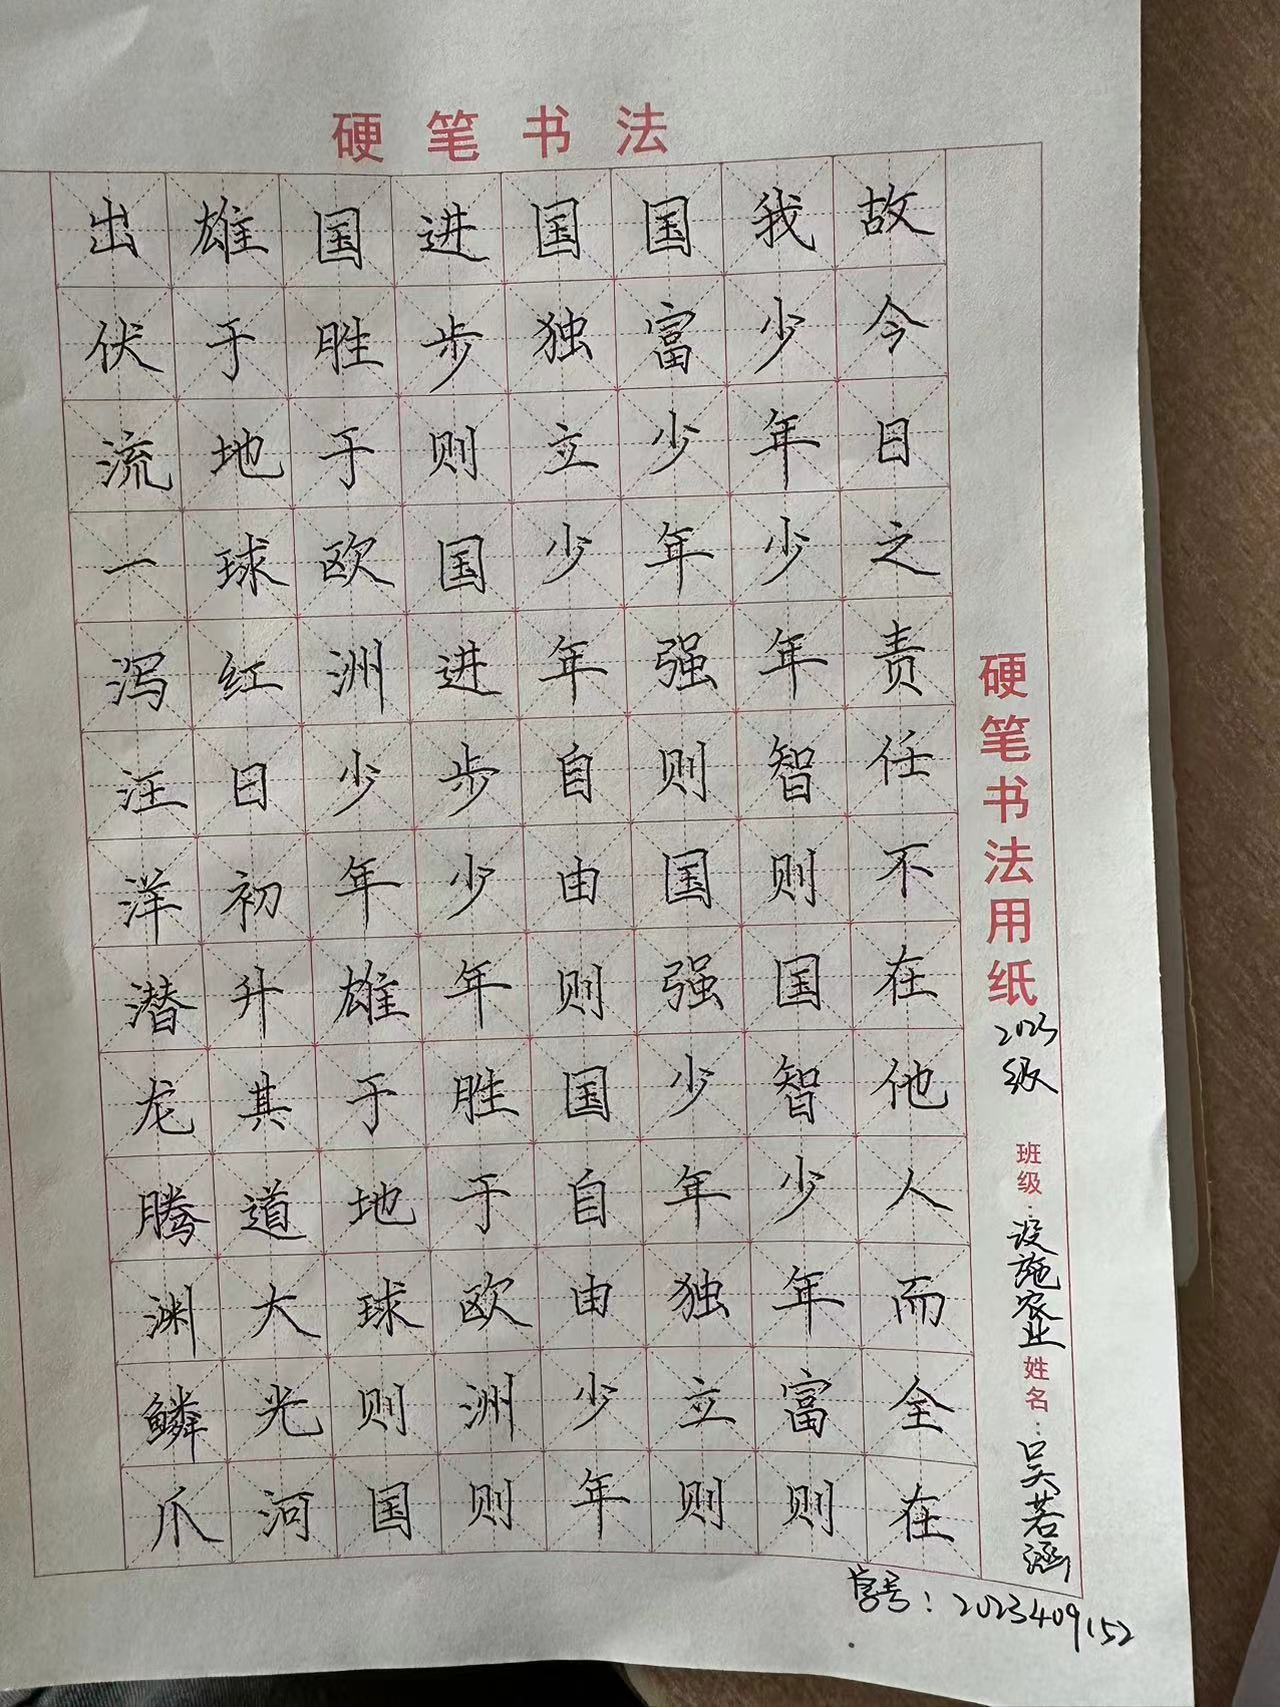 硬笔书法
硬笔书法用纸
2023级
班级：设施农业 姓名：吴若涵
故今日之责任不在他人而全在
我少年少年智则国智少年富则
国富少年强则国强少年独立则
国独立少年自由则国自由少年
进步则国进步少年胜于欧洲则
国胜于欧洲少年雄于地球则国
雄于地球红日初升其道大光河
出伏流一泻汪洋潜龙腾渊鳞爪
学号：2023409152